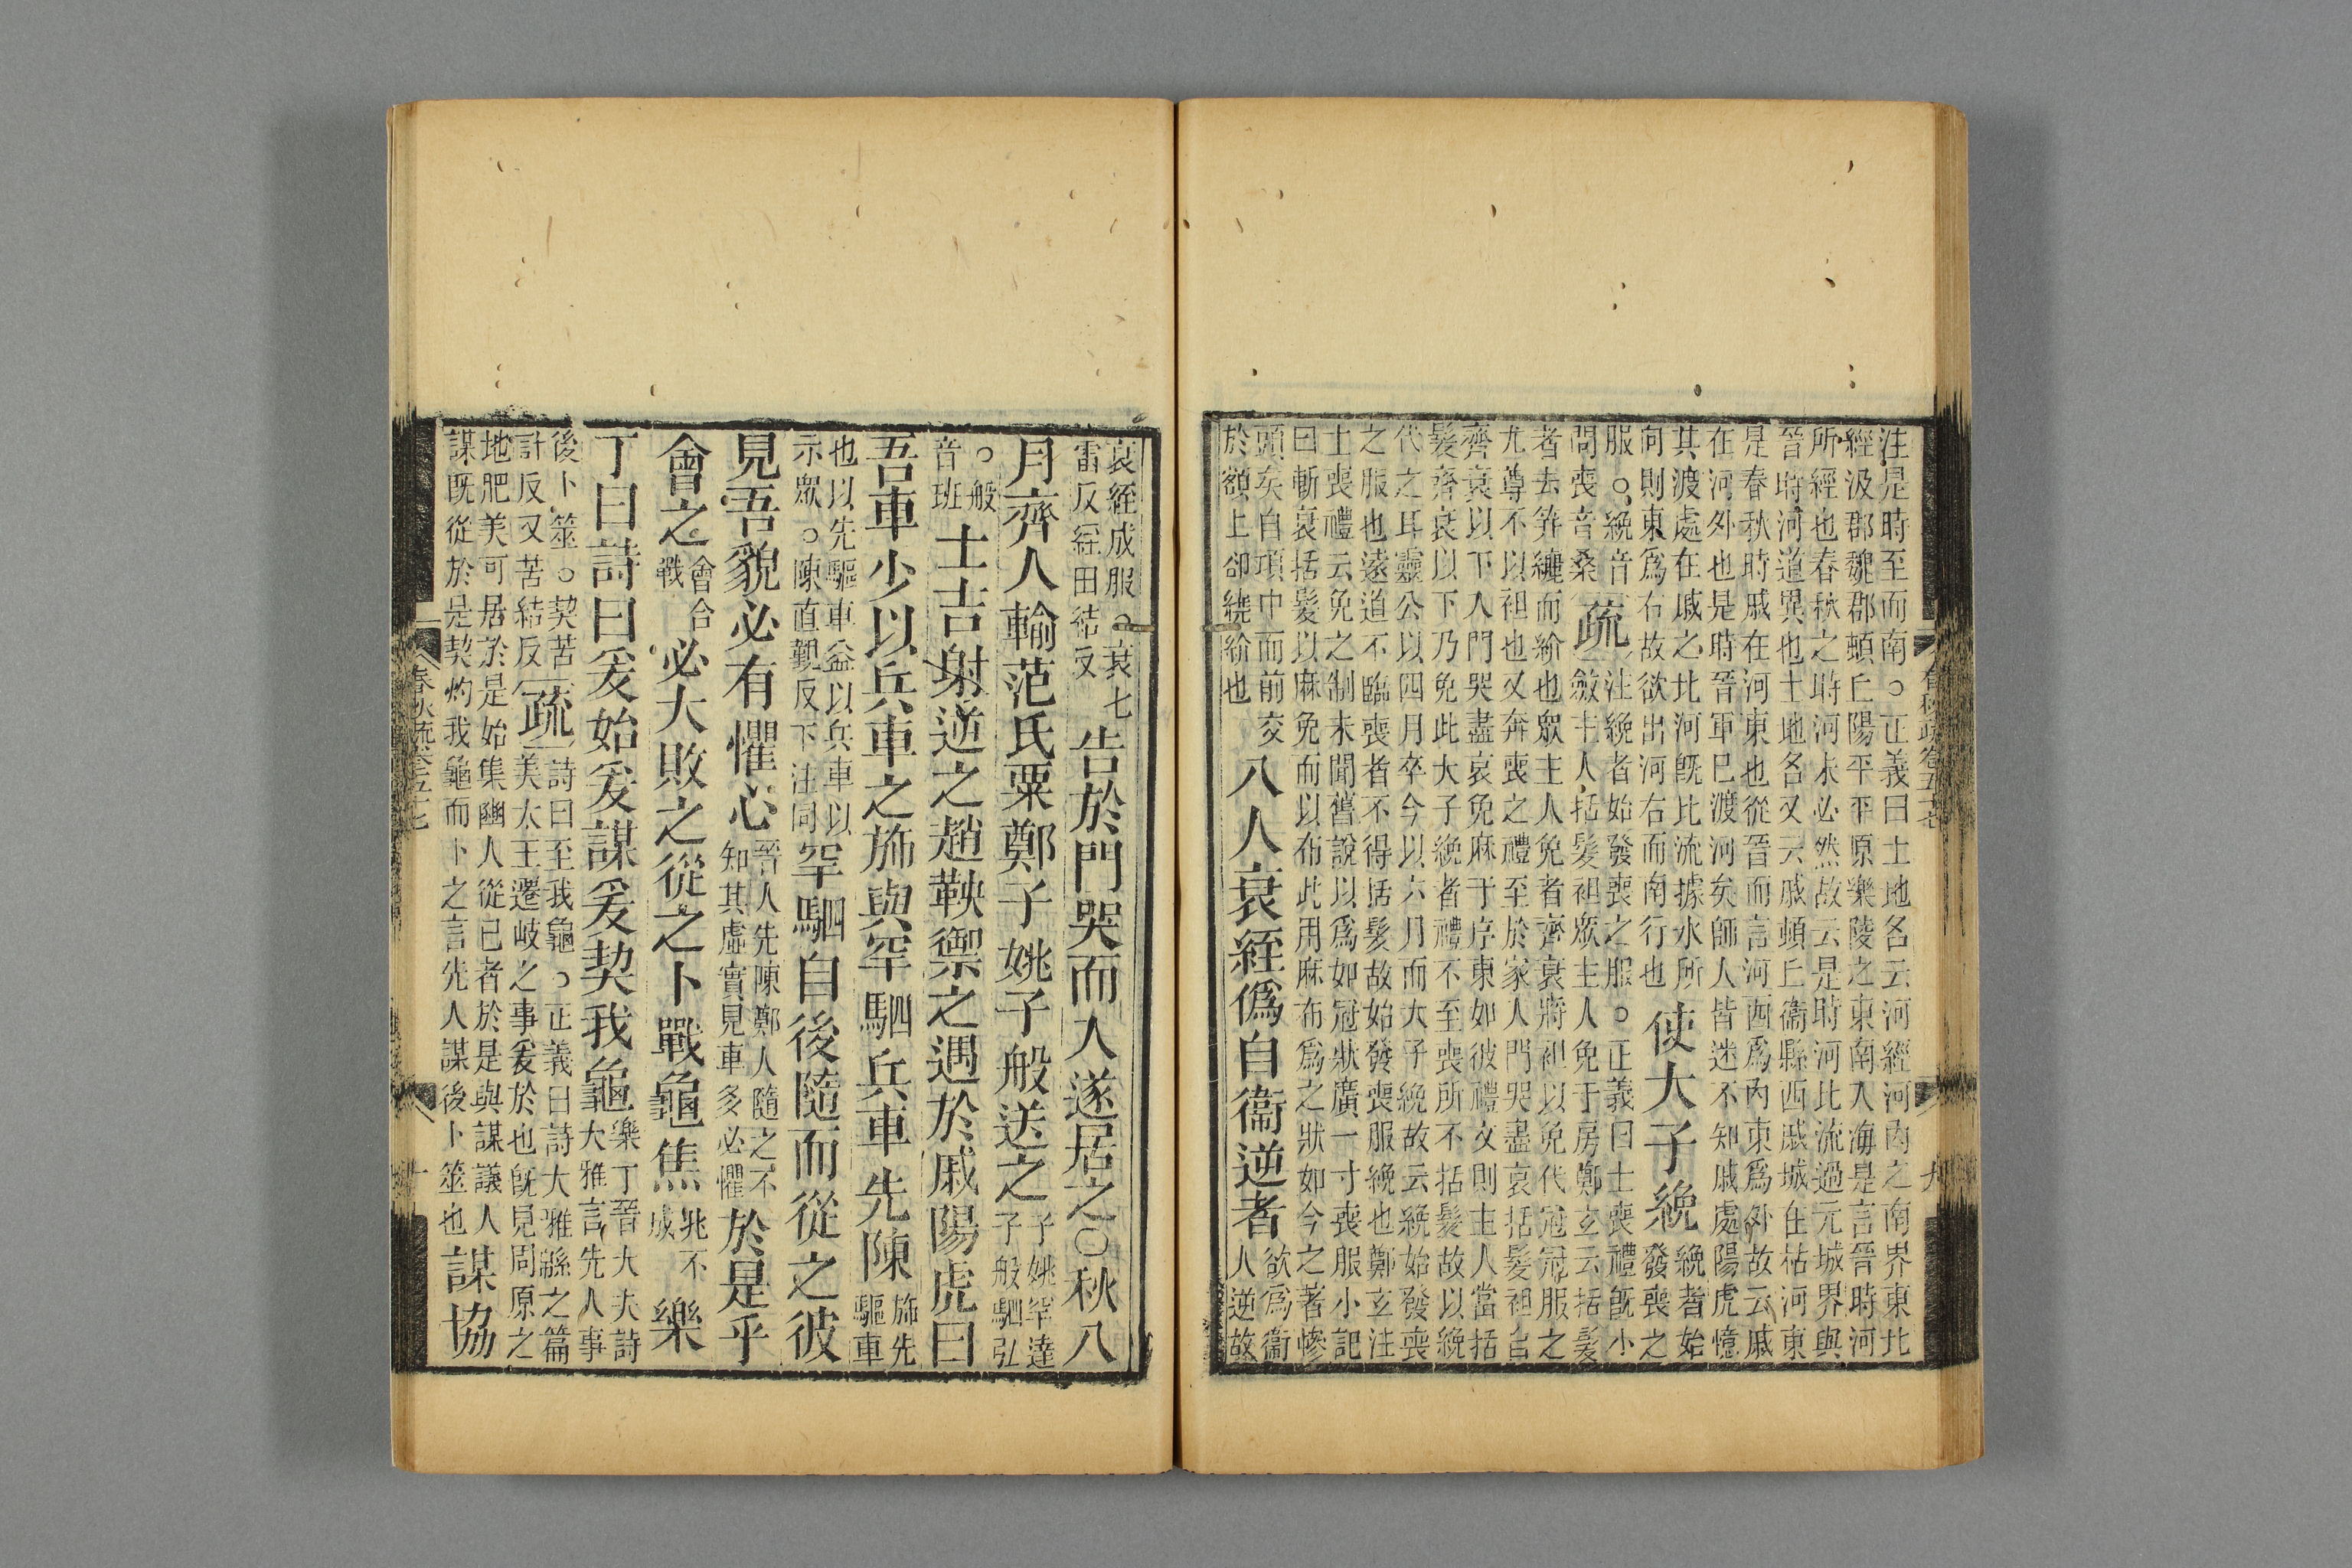 注是時至而南○正義曰土地名云河經河內之南界東北
經汲郡魏郡頓丘陽平平原樂陵之東南入海是言晉時河
所經也春秋之時河未必然故云是時河北流過元城界與
晉時河道異也土地名又云戚頓丘衞縣西戚城在枯河東
是春秋時戚在河東也從晉而言河西爲內東爲外故云戚
在河外也是時晉軍巳渡河矣師人皆迷不知戚處陽虎憶
其渡處在戚之北河旣北流據水所
向則東爲右故欲出河右而南行也
使大子絻
絻者始
發喪之
服○絻音
問喪音桑
疏
注絻者始發喪之服○正義曰士喪禮旣小
斂主人括髮袒眾主人免于房鄭玄云括髮
者去笄纚而紒也眾主人免者齊衰將袒以免代冠冠服之
尤尊不以袒也又奔喪之禮至於家人門哭盡哀括髮袒自
齊衰以下入門哭盡哀免麻于序東如彼禮文則主人當括
髮齊衰以下乃免此大子絻者禮不至喪所不括髮故以絻
代之耳靈公以四月卒今以六月而大子絻故云絻始發喪
之服也遠道不臨喪者不得括髮故始發喪服絻也鄭玄注
士喪禮云免之制未聞舊說以爲如冠狀廣一寸喪服小記
曰斬衰括髮以麻免而以布此用麻布爲之狀如今之著幓
頭矣自項中而前交
於額上卻繞紒也
八人衰絰僞自衞逆者
欲爲衞
人逆故
春秋疏卷五十七
九
衰絰成服○衰七
雷反絰田結反
告於門哭而入遂居之○秋八
月齊人輸范氏粟鄭子姚子般送之
子姚罕達
子般駟弘
○般
音班
士吉射逆之趙鞅禦之遇於戚陽虎曰
吾車少以兵車之旆與罕駟兵車先陳
旆先
驅車
也以先驅車益以兵車以
示眾○陳直覲反下注同
罕駟自後隨而從之彼
見吾貌必有懼心
晉人先陳鄭人隨之不
知其虛實見車多必懼
於是乎
會之
會合
戰
必大敗之從之卜戰龜焦
兆不
成
樂
丁曰詩曰爰始爰謀爰契我龜
樂丁晉大夫詩
大雅言先人事
後卜筮○契苦
計反又苦結反
疏
詩曰至我龜○正義曰詩大雅緜之篇
美大王遷岐之事爰於也旣見周原之
地肥美可居於是始集豳人從巳者於是與謀議人
謀旣從於是契灼我龜而卜之言先人謀後卜筮也
謀協
春秋疏卷五十七
十